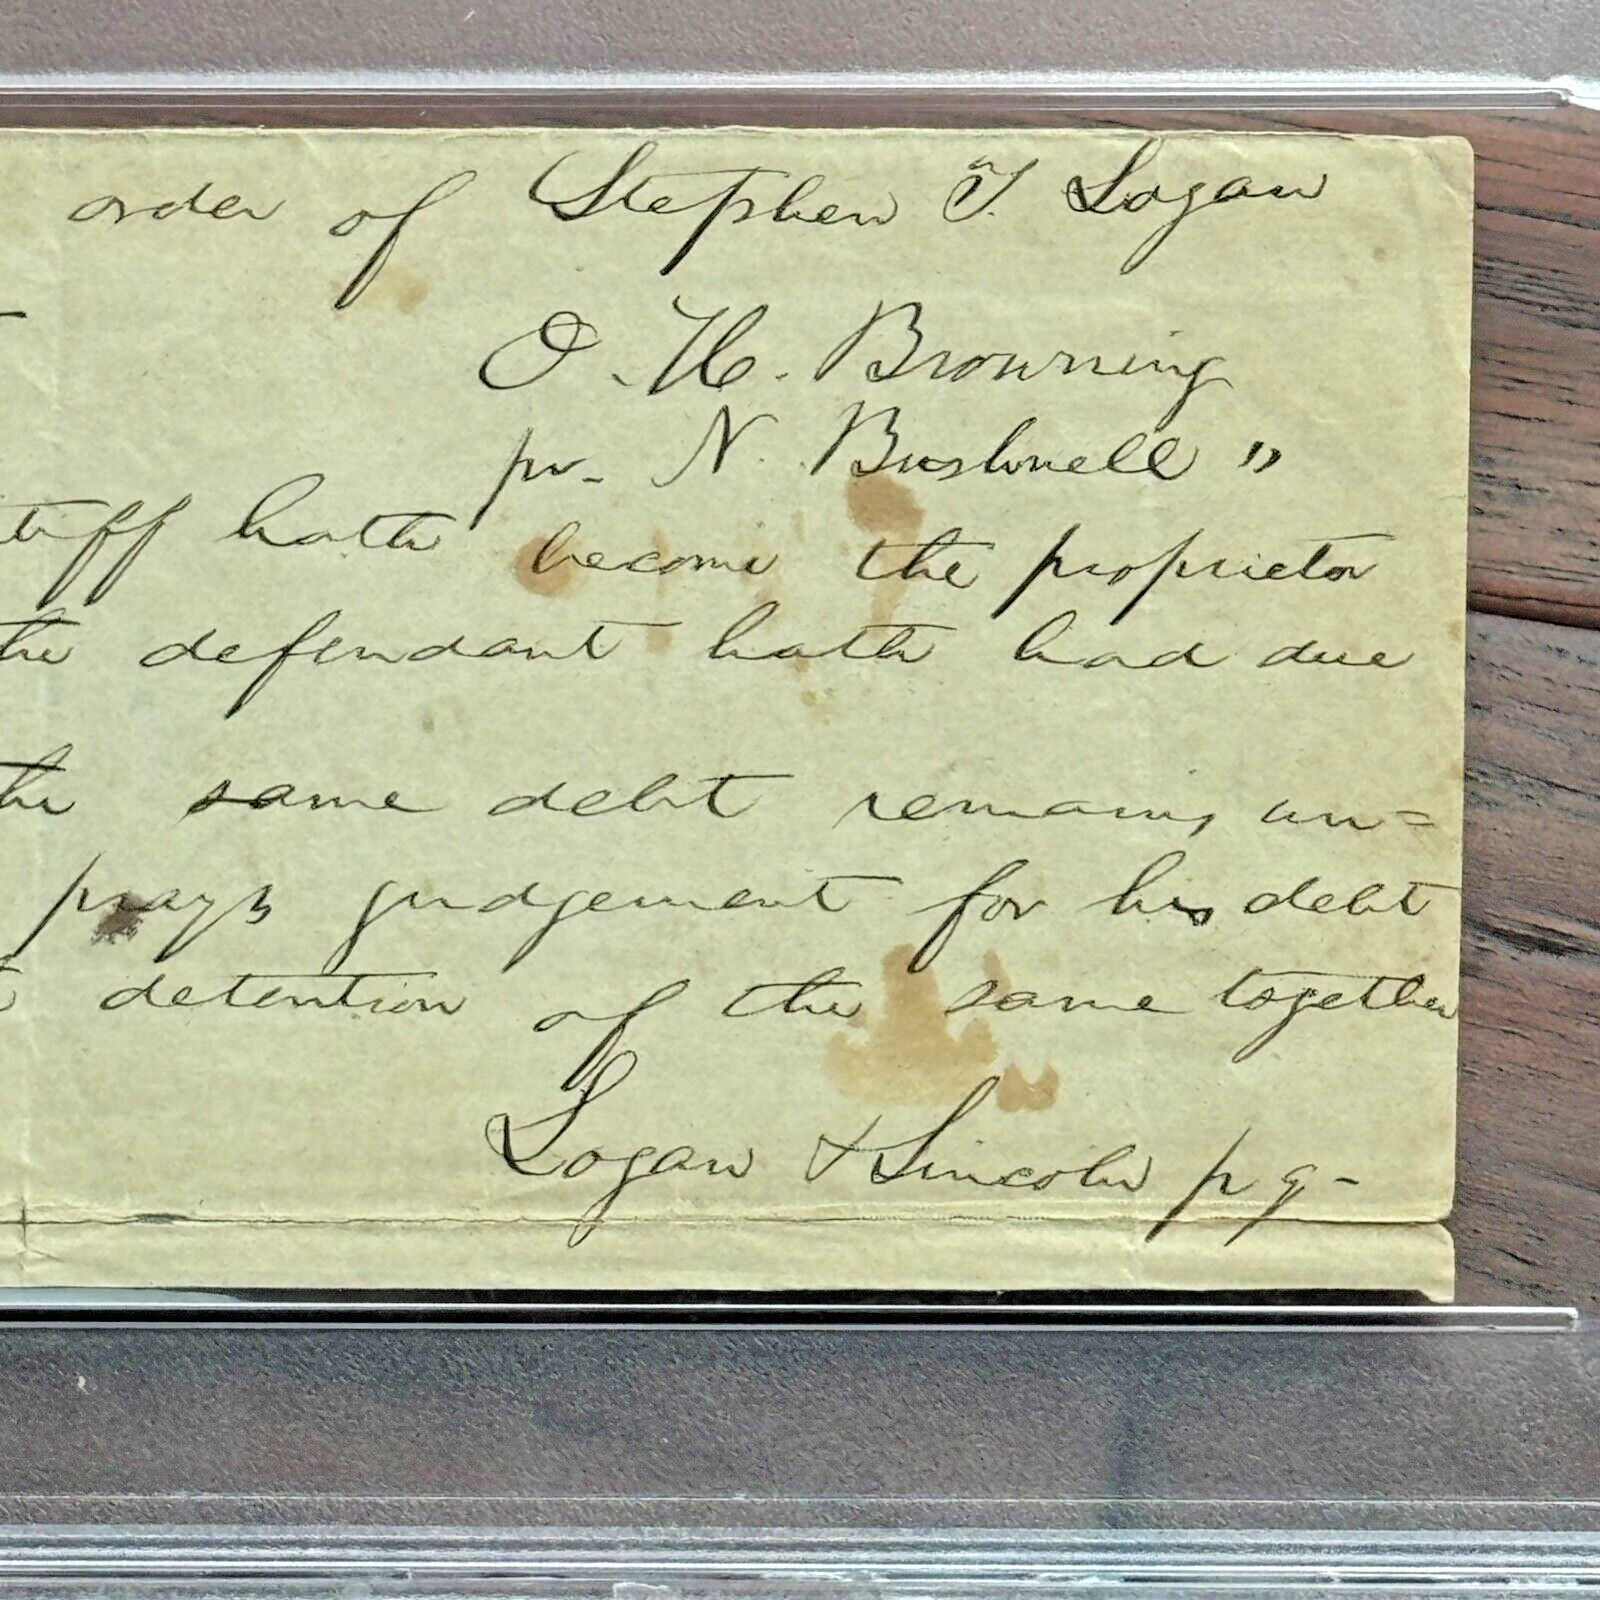 order of Stephen T. Logan
O. H. Browning
pr. N. Bushnell "
tiff hath become the proprietor
the defendant hath had due
the same debt remains un=
prays judgement for his debt
detention of the same together
Logan & Lincoln p q-